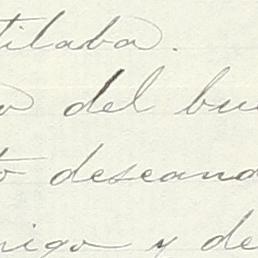 tilaba.
o del bu
to deseand
migo y de